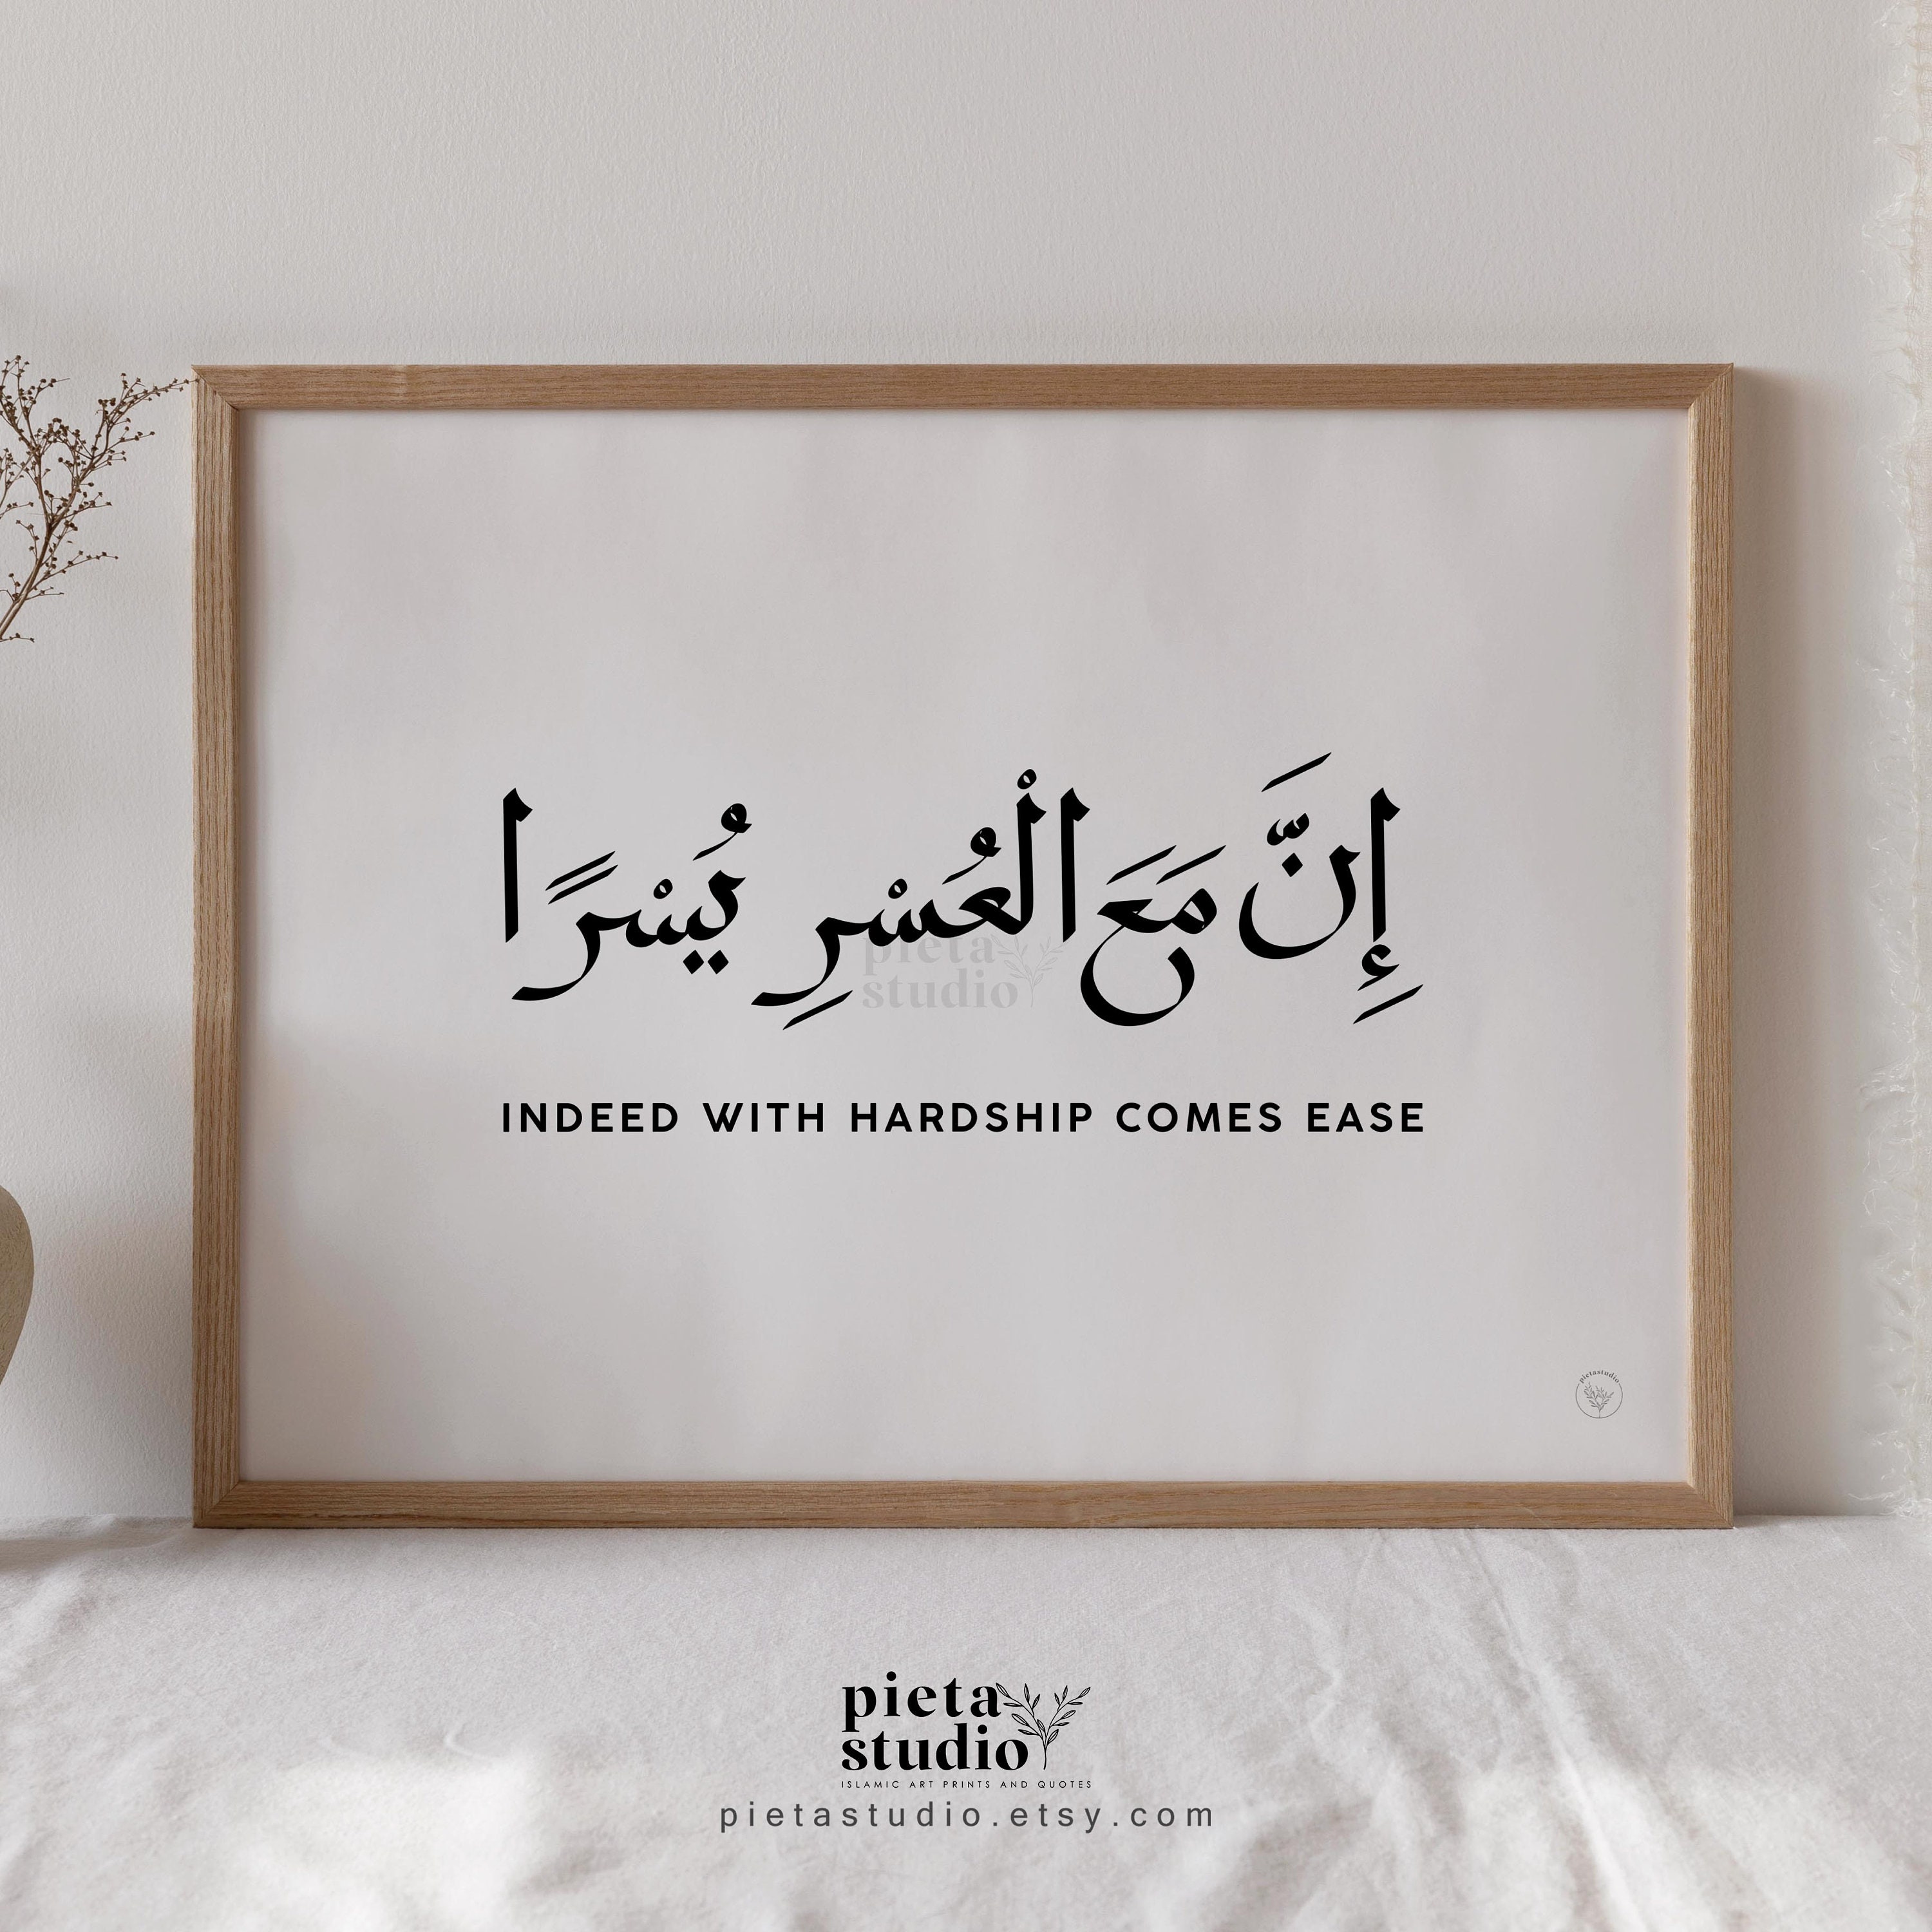 إِنَّ مَعَ الْعُسْرِ يُسْرًا
pieta
studio
INDEED WITH HARDSHIP COMES EASE
pietastudio
pieta
studio
ISLAMIC ART PRINTS AND QUOTES
pietastudio.etsy.com